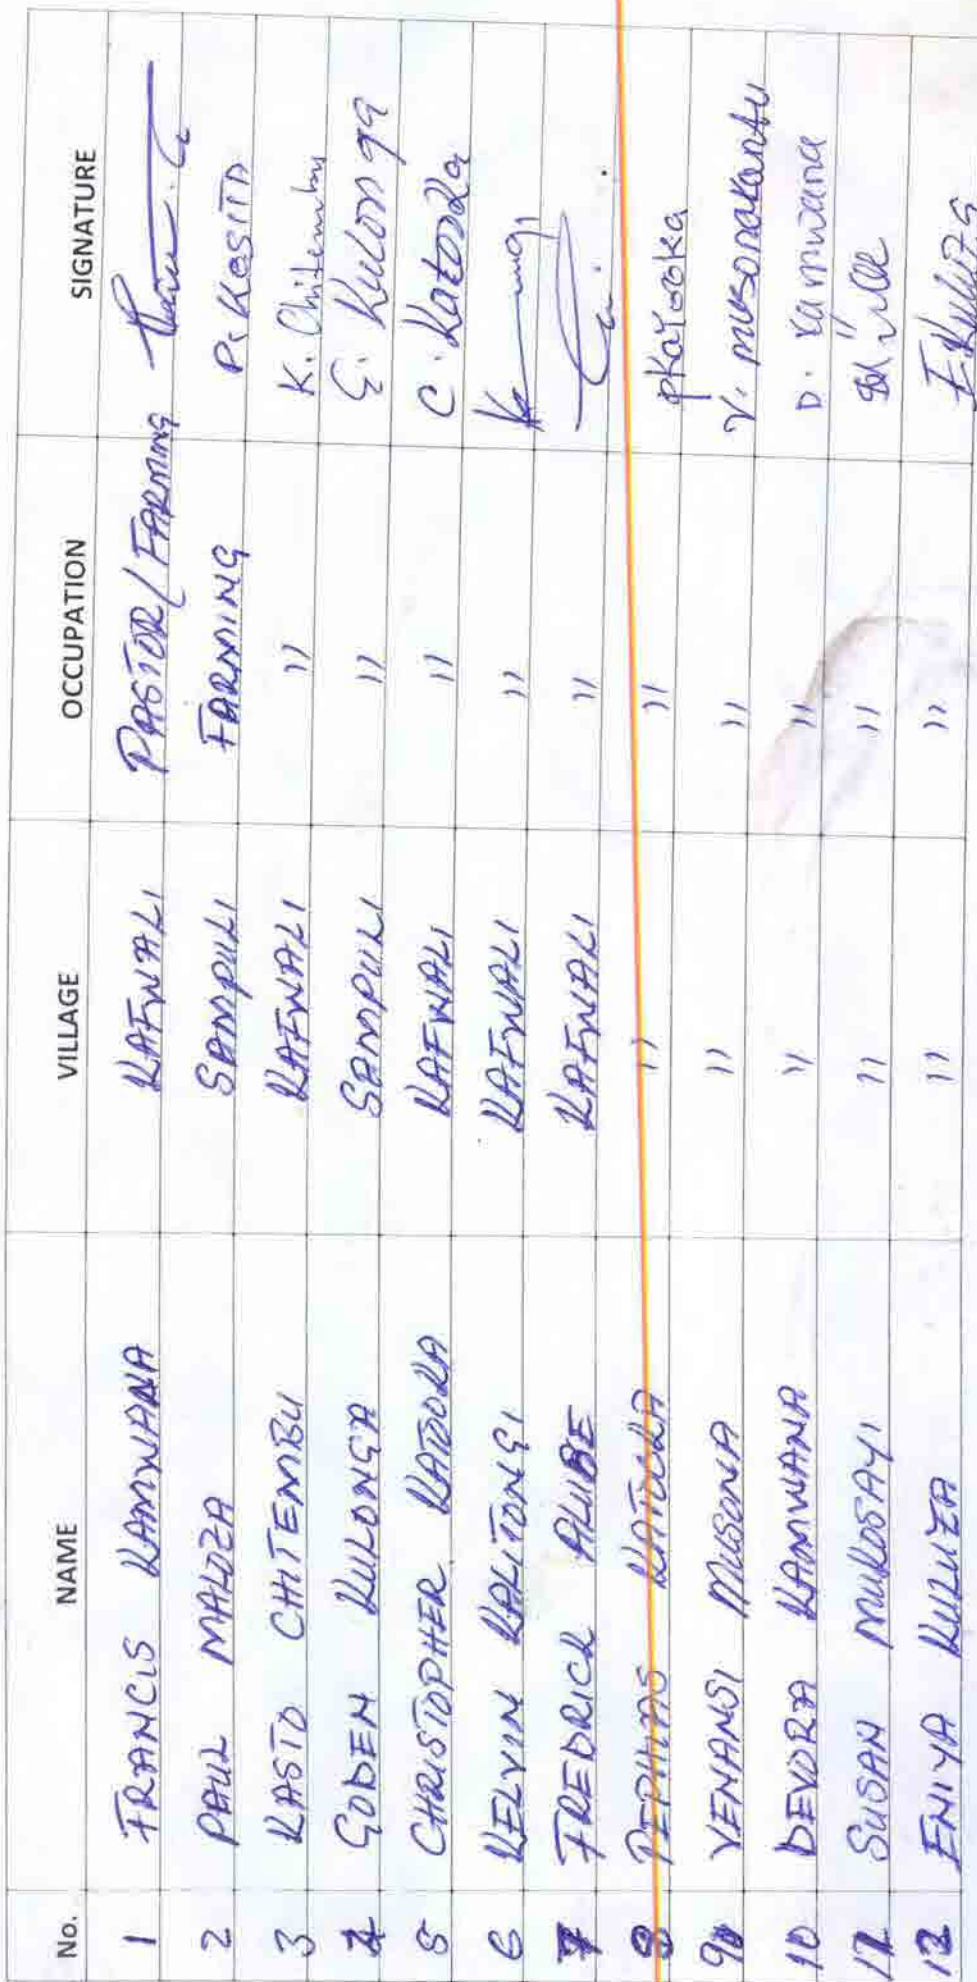 No. NAME VILLAGE OCCUPATION SIGNATURE
1 FRANCIS KAMWANA KAFWALI PASTOR/FARMING
2 PAUL MALOZA SAMPULI FARMING P. KASITA
3 KASTO CHITEMBU KAFWALI " K. Chitembu
4 GODEN KULONGA SAMPULI " G. Kulonga
5 CHRISTOPHER KATOOKA KAFWALI " C. Katooka
6 KELVIN KALITONGI KAFWALI "
7 FREDRICK ALUBE KAFWALI "
8 PEPHIAS KATOOKA " " pKatooka
9 VENANSI MUSONA " " V. musonakantu
10 DEVORA KAMWANA " " D. Kamwana
11 SUSAN MUKOSAYI " "
12 ENIYA KULUZA " " E.Kuluza